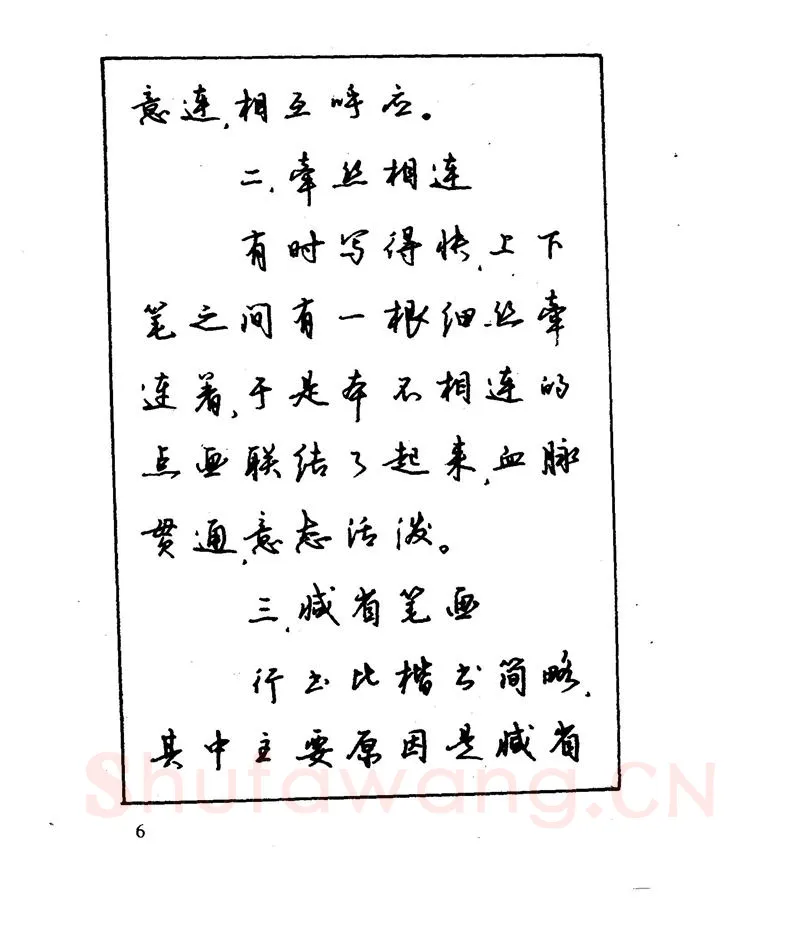 意连,相互呼应。
二,牵丝相连
有时写得快,上下
笔之间有一根细丝牵
连着,于是本不相连的
点画联结了起来,血脉
贯通,意态活泼。
三,减省笔画
行书比楷书简略,
其中主要原因是减省
Shufawang.CN
6